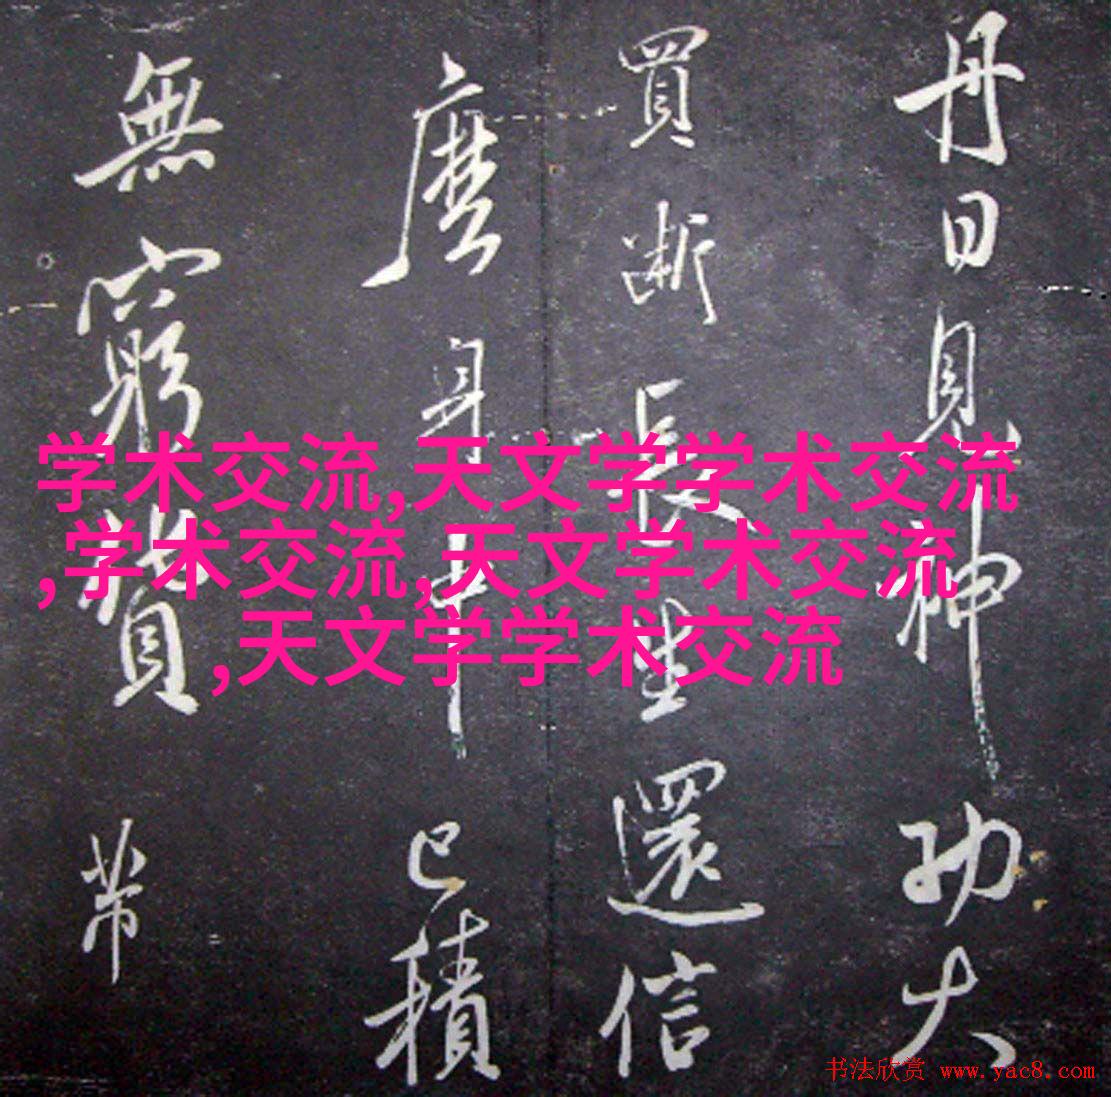 丹日見神功大
買斷長生還信
麼身中已積
無窮
学术交流,天文学学术交流
,学术交流,天文学术交流
,天文学学术交流
书法欣赏 www.yac8.com